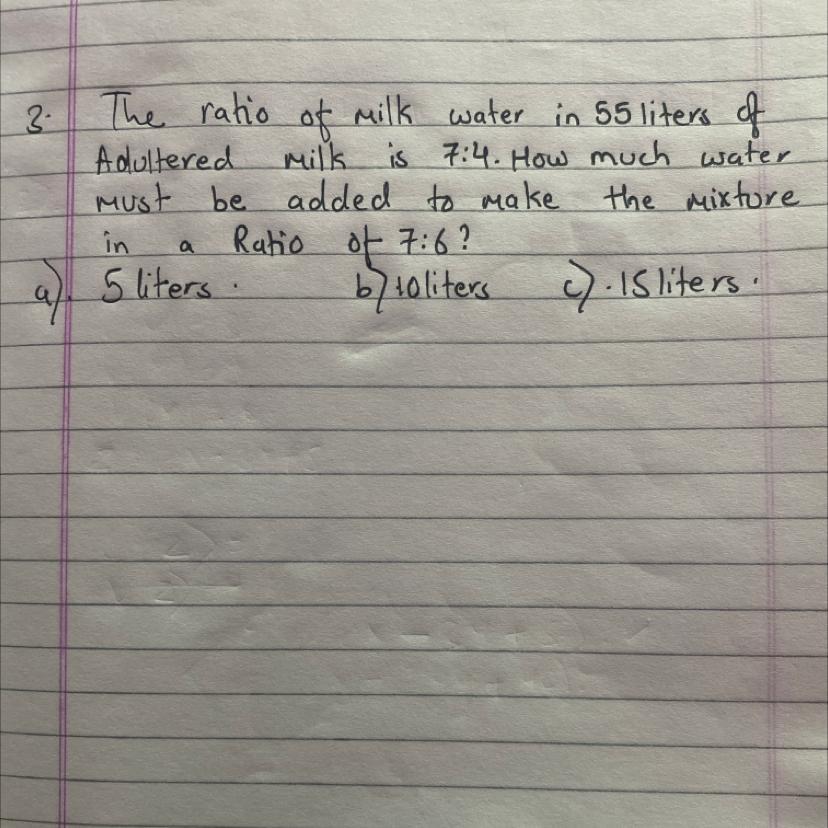 3. The ratio of milk water in 55 liters of
Adultered milk is 7:4. How much water
must be added to make the mixture
in a Ratio of 7:6?
a). 5 liters. b) 10 liters c). 15 liters.